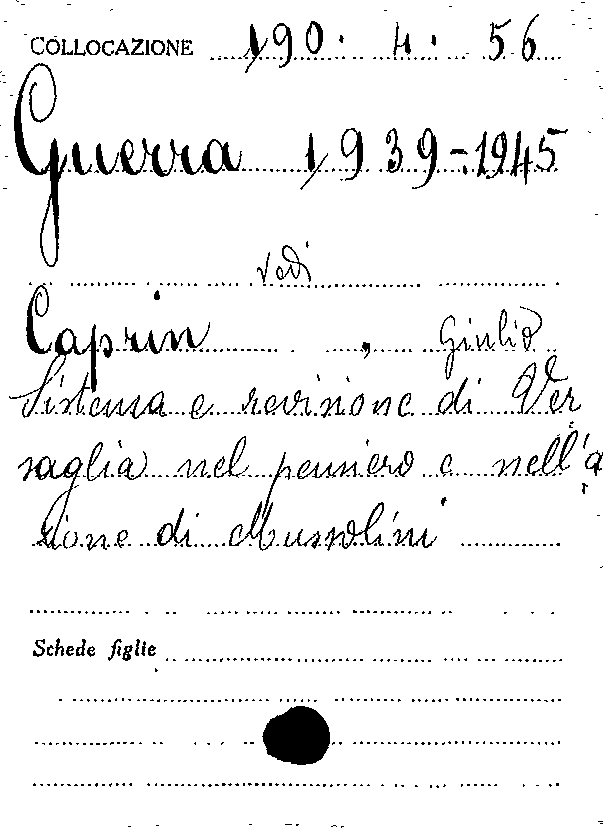 COLLOCAZIONE 190. 4. 56
Guerra 1939-1945
vedi
Caprin, Giulio
Sistema e revisione di Ver
saglia nel pensiero e nell'a
zione di Mussolini
Schede figlie